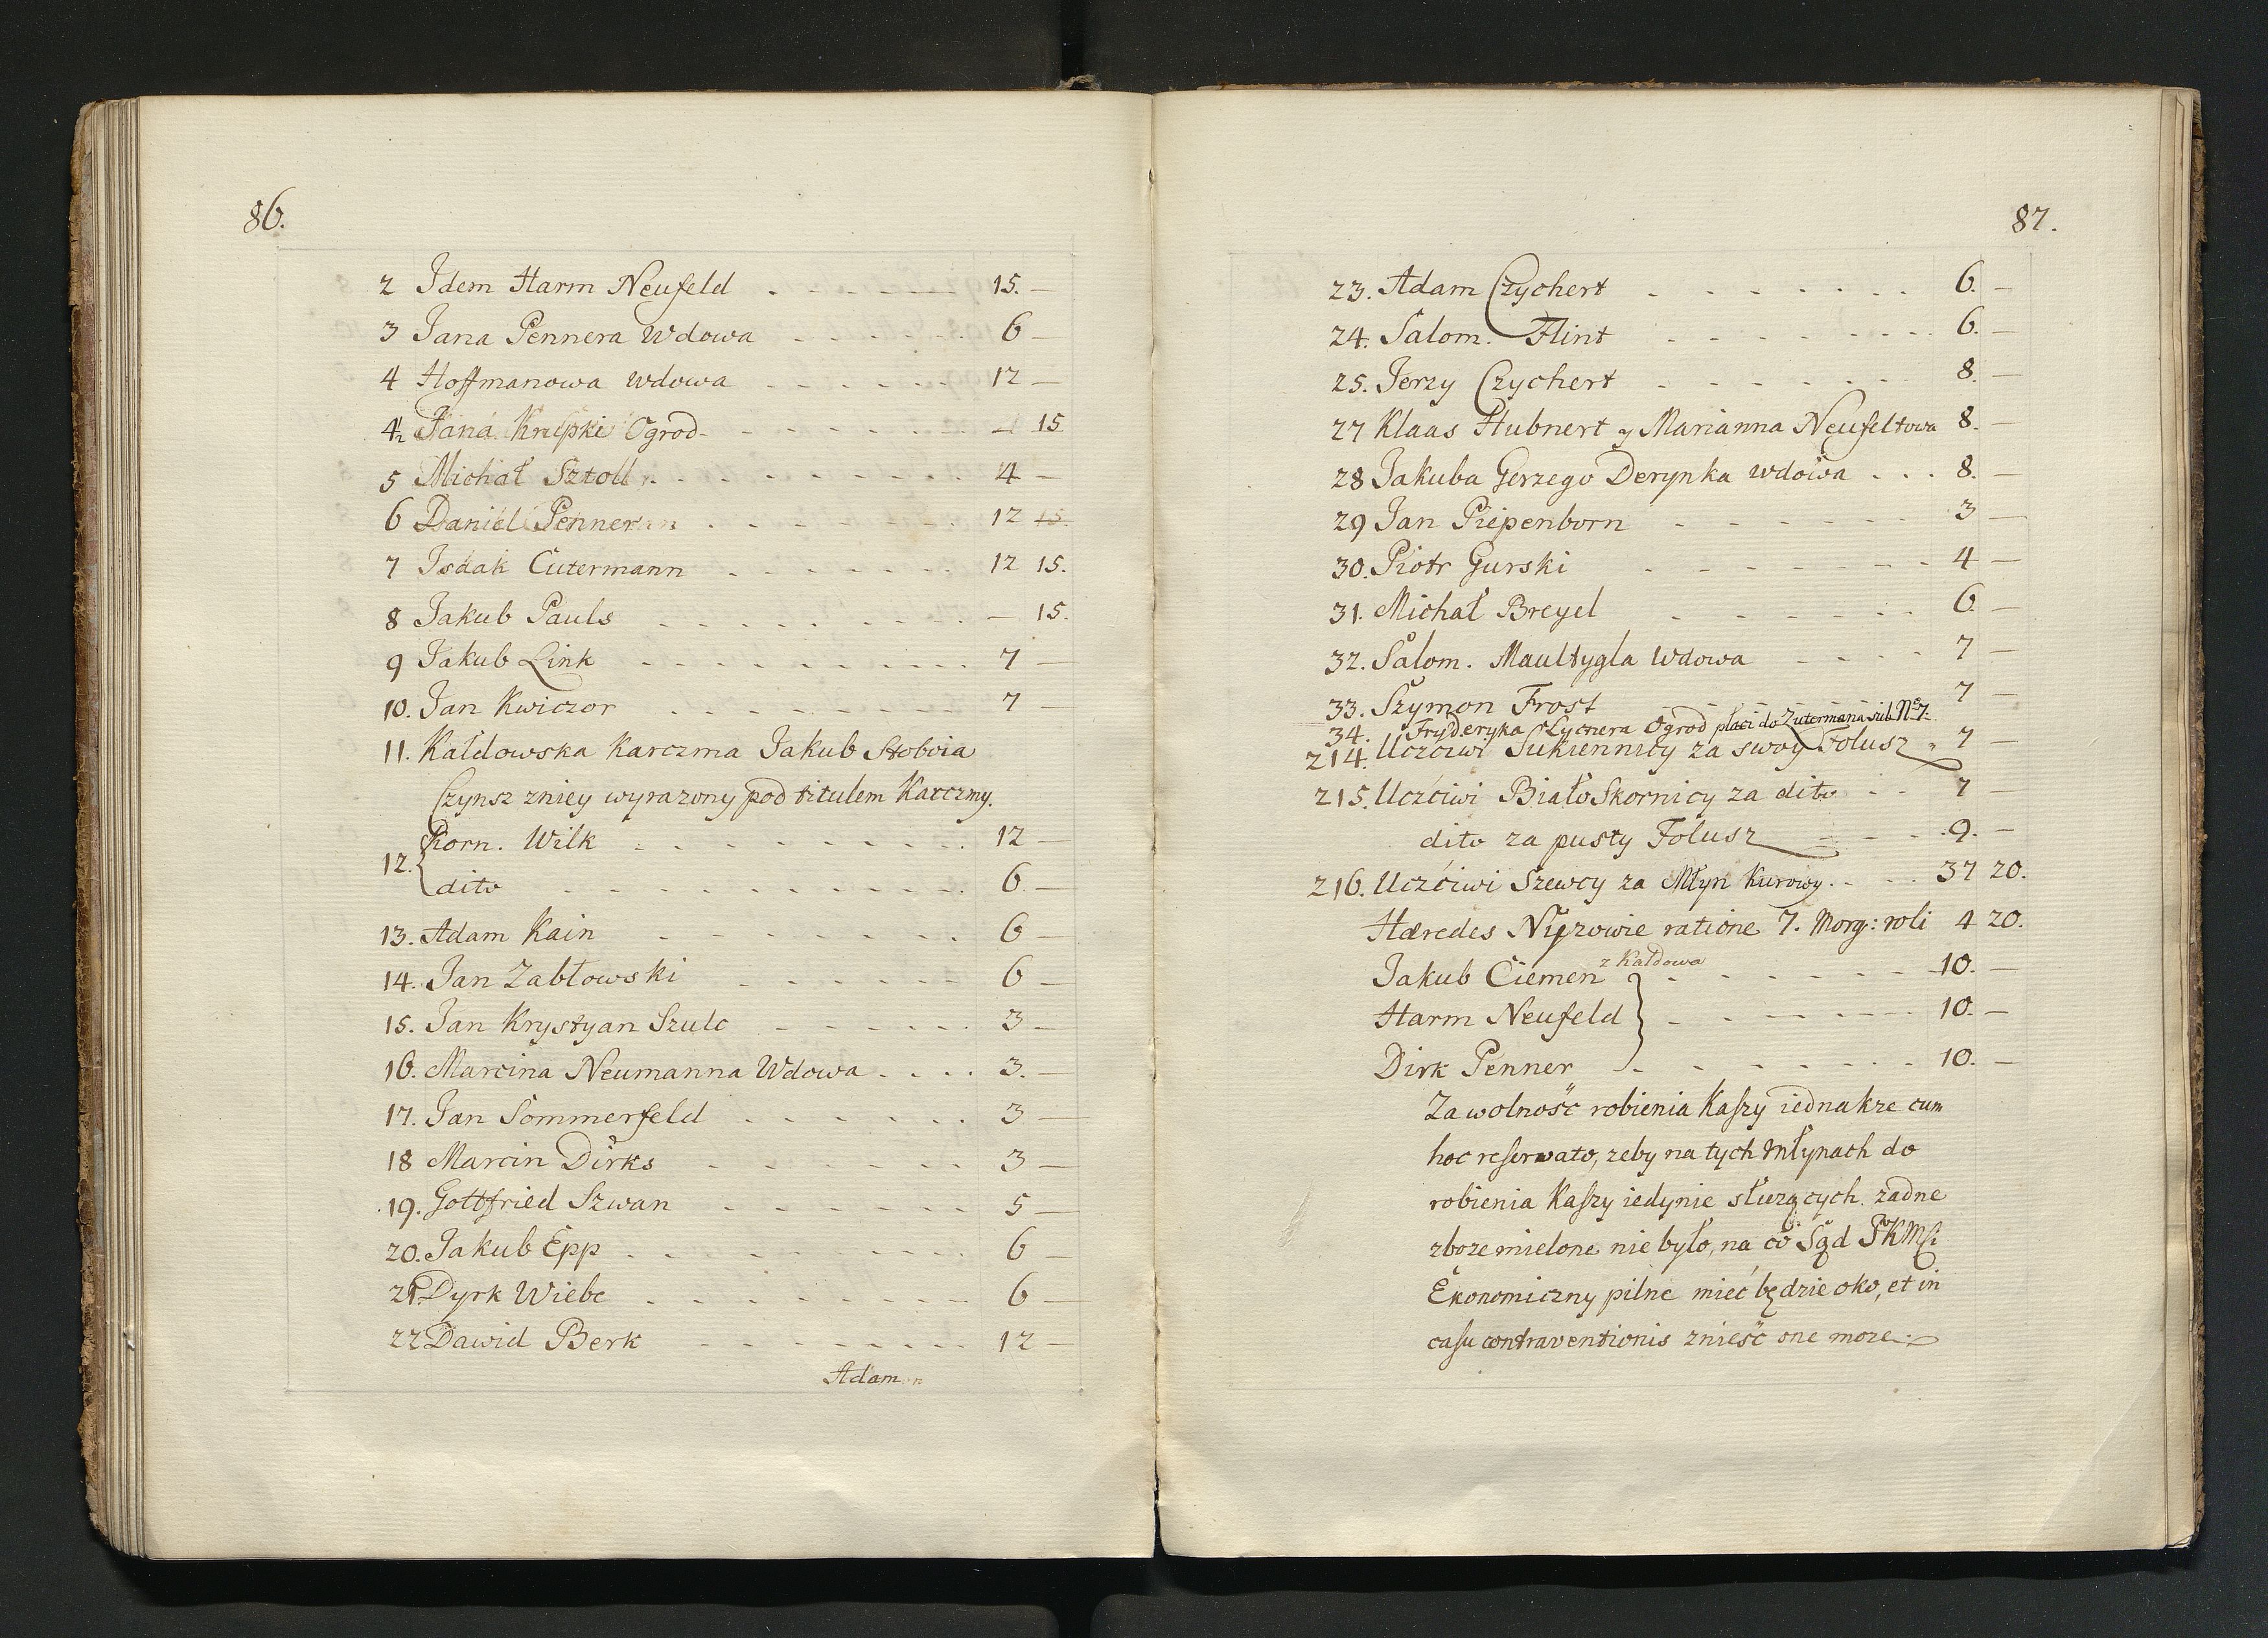 86.
2 Idem Harm Neufeld - - - - - 15. —
3 Jana Pennera Wdowa - - - - - 6 —
4 Hoffmanowa wdowa - - - - - - 12 —
4½ Jana Krupki Ogrod - - - - - - — 15
5 Michał Sztoll - - - - - - - - 4 —
6 Daniel Penner - - - - - - - 12 15.
7 Isaak Cutermann - - - - - - 12 15.
8 Jakub Pauls - - - - - - - - — 15.
9 Jakub Link - - - - - - - - - 7 —
10. Jan Kwiczor - - - - - - - - 7 —
11. Kałdowska Karczma Jakub Stoboia
Czynsz zniey wyrazony pod titulem Karczmy.
12. { Korn. Wilk - - - - - - - - 12 —
dito - - - - - - - - - - 6. —
13. Adam Kain - - - - - - - 6 —
14. Jan Zabłowski - - - - - - 6 —
15. Jan Krystyan Szulc - - - - - 3 —
16. Marcina Neumanna Wdowa - - - - 3. —
17. Jan Sommerfeld - - - - - - 3 —
18 Marcin Dirks - - - - - - - 3 —
19. Gottfried Szwan - - - - - - 5 —
20. Jakub Epp - - - - - - - - 6 —
21. Dyrk Wiebe - - - - - - - - 6 —
22 Dawid Berk - - - - - - - 12 —
Adam
87.
23. Adam Czychert - - - - - - - 6. —
24. Salom. Flint - - - - - - - 6. —
25. Jerzy Czychert - - - - - - 8. —
27 Klaas Hubnert y Marianna Neufeltowa 8. —
28 Jakuba Gerzego Derynka wdowa - - - 8. —
29 Jan Piepenborn - - - - - - 3 —
30. Piotr Gurski - - - - - - - 4 —
31. Michał Breyel - - - - - - 6 —
32. Salom. Maultygla Wdowa - - - - 7 —
33. Szymon Frost - - - - - - 7 —
34. Fryderyka Lycnera Ogrod płaci do Zutermana sub No 7.
214. Uczciwi Sukiennicy za swoy Folusz „ 7 —
215. Uczciwi Biało Skornicy za dito - - 7 —
dito za pusty Folusz - - - - 9. —
216. Uczciwi Szewcy za Młyn Kurowy. - - - 37 20.
Hæredes Nipzowie ratione 7. Morg: roli 4 20.
z Kałdowa
Jakub Ciemen } - - - - - - 10. —
Harm Neufeld } - - - - - - 10. —
Dirk Penner } - - - - - - 10. —
Za wolność robienia Kaszy iednakze cum
hoc reserwato, zeby na tych młynach do
robienia Kaszy iedynie służących. zadne
zboze mielone nie było, na co Sąd JKMſci
Ekonomiczny pilne mieć będzie oko, et in
casu contraventionis znieść one moze.